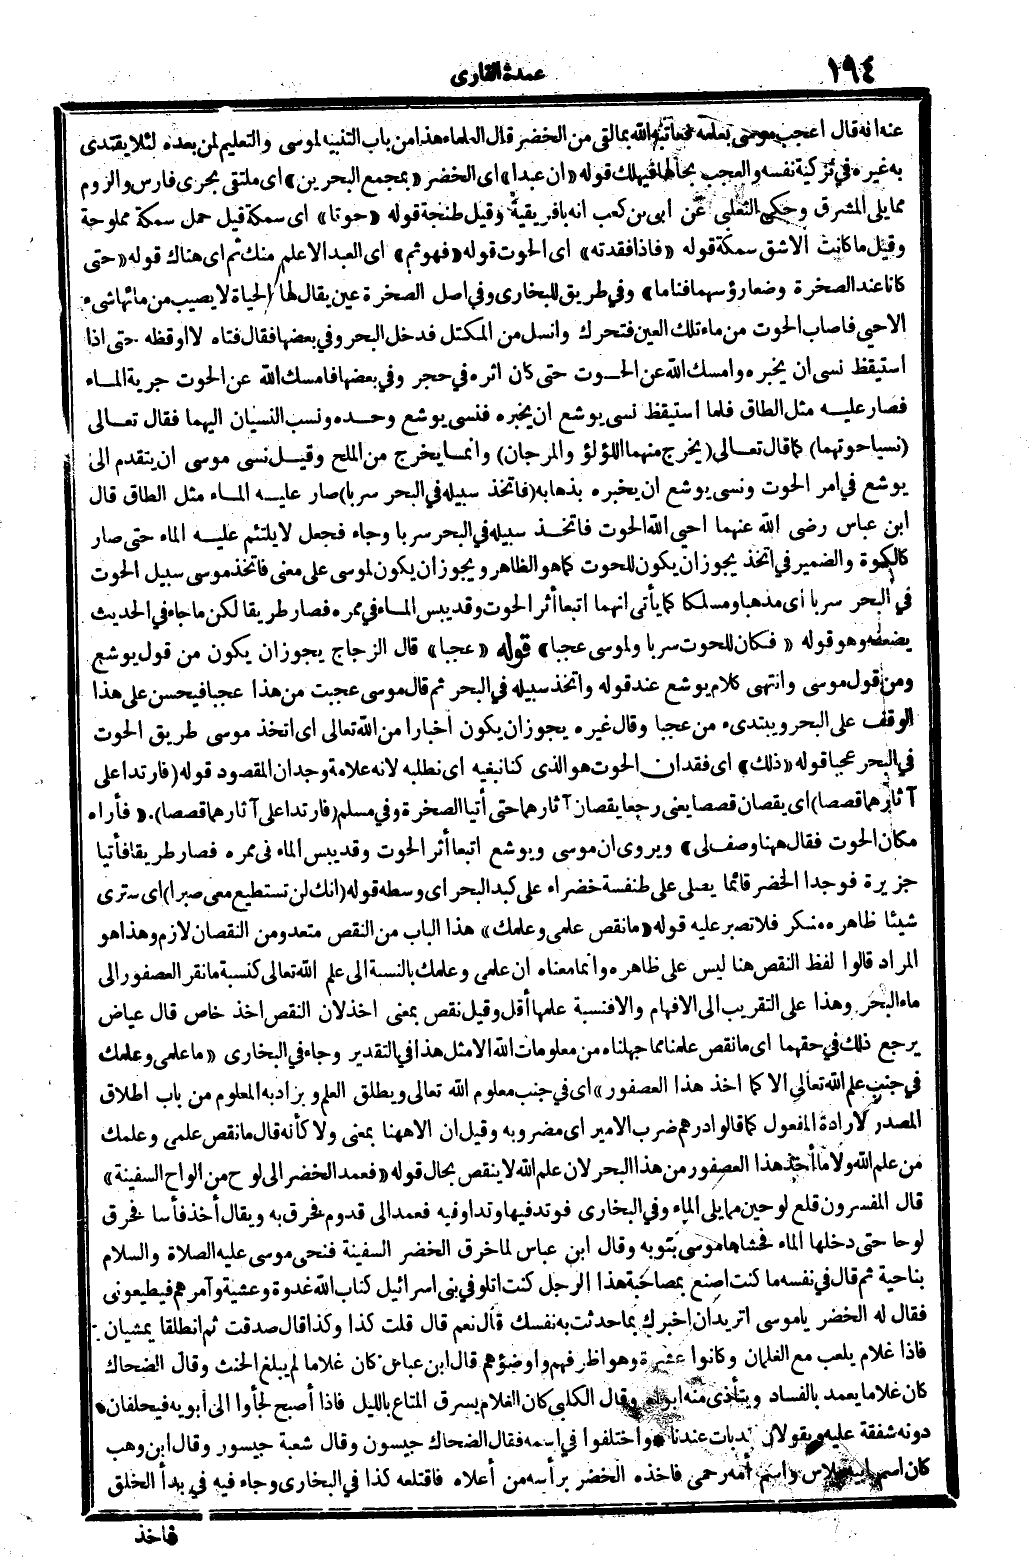 ١٩٤
عمدة القارى
عنه انه قال اعجب موسى بعلمه فعاتبه الله بما لقى من الخضر قال العلماء هذا من باب التنبيه لموسى والتعليم لمن بعده لئلا يقتدى
به غيره فى تزكية نفسه والعجب بحالها فيهلك قوله «ان عبدا» اى الخضر «بمجمع البحرين» اى ملتقى بحرى فارس والروم
مما يلى المشرق وحكى الثعلبى عن ابى بن كعب انه بافريقية وقيل طنجة قوله «حوتا» اى سمكة قيل حمل سمكة مملوحة
وقيل ما كانت الا شق سمكة قوله «فاذا فقدته» اى الحوت قوله «فهو ثم» اى العبد الاعلم منك ثم اى هناك قوله «حتى
كانا عند الصخرة وضعا رؤسهما فناما» وفى طريق للبخارى وفى اصل الصخرة عين يقال لها الحياة لا يصيب من مائها شىء
الا حيى فاصاب الحوت من ماء تلك العين فتحرك وانسل من المكتل فدخل البحر وفى بعضها فقال فتاه لا اوقظه حتى اذا
استيقظ نسى ان يخبره وامسك الله عن الحوت حتى كان اثره فى حجر وفى بعضها فامسك الله عن الحوت جرية الماء
فصار عليه مثل الطاق فلما استيقظ نسى يوشع ان يخبره فنسى يوشع وحده ونسب النسيان اليهما فقال تعالى
(نسيا حوتهما) كما قال تعالى (يخرج منهما اللؤلؤ والمرجان) وانما يخرج من الملح وقيل نسى موسى ان يتقدم الى
يوشع فى امر الحوت ونسى يوشع ان يخبره بذهابه (فاتخذ سبيله فى البحر سربا) صار عليه الماء مثل الطاق قال
ابن عباس رضى الله عنهما احيى الله الحوت فاتخذ سبيله فى البحر سربا وجاء فجعل لا يلتئم عليه الماء حتى صار
كالكوة والضمير فى اتخذ يجوز ان يكون للحوت كما هو الظاهر ويجوز ان يكون لموسى على معنى فاتخذ موسى سبيل الحوت
فى البحر سربا اى مذهبا ومسلكا كما يأتى انهما اتبعا أثر الحوت وقد يبس الماء فى ممره فصار طريقا لكن ما جاء فى الحديث
يضعفه وهو قوله «فكان للحوت سربا ولموسى عجبا» قوله «عجبا» قال الزجاج يجوز ان يكون من قول يوشع
ومن قول موسى وانتهى كلام يوشع عند قوله واتخذ سبيله فى البحر ثم قال موسى عجبت من هذا عجبا فيحسن على هذا
الوقف على البحر ويبتدىء من عجبا وقال غيره يجوز ان يكون اخبارا من الله تعالى اى اتخذ موسى طريق الحوت
فى البحر عجبا قوله «ذلك» اى فقدان الحوت هو الذى كنا نبغيه اى نطلبه لانه علامة وجدان المقصود قوله (فارتدا على
آثارهما قصصا) اى يقصان قصصا يعنى رجعا يقصان آثارهما حتى أتيا الصخرة وفى مسلم (فارتدا على آثارهما قصصا). «فأراه
مكان الحوت فقال ههنا وصف لى» ويروى ان موسى ويوشع اتبعا أثر الحوت وقد يبس الماء فى ممره فصار طريقا فأتيا
جزيرة فوجدا الخضر قائما يصلى على طنفسة خضراء على كبد البحر اى وسطه قوله (انك لن تستطيع معى صبرا) اى سترى
شيئا ظاهره منكر فلا تصبر عليه قوله «ما نقص علمى وعلمك» هذا الباب من النقص متعد ومن النقصان لازم وهذا هو
المراد قالوا لفظ النقص هنا ليس على ظاهره وانما معناه ان علمى وعلمك بالنسبة الى علم الله تعالى كنسبة ما نقر العصفور الى
ماء البحر وهذا على التقريب الى الافهام والا فنسبة علمها أقل وقيل نقص بمعنى اخذ لان النقص اخذ خاص قال عياض
يرجع ذلك فى حقهما اى ما نقص علمنا مما جهلناه من معلومات الله الا مثل هذا فى التقدير وجاء فى البخارى «ما علمى وعلمك
فى جنب علم الله تعالى الا كما اخذ هذا العصفور» اى فى جنب معلوم الله تعالى ويطلق العلم ويراد به المعلوم من باب اطلاق
المصدر لارادة المفعول كما قالوا درهم ضرب الامير اى مضروبه وقيل ان الا ههنا بمعنى ولا كأنه قال ما نقص علمى وعلمك
من علم الله ولا ما أخذ هذا العصفور من هذا البحر لان علم الله لا ينقص بحال قوله «فعمد الخضر الى لوح من الواح السفينة»
قال المفسرون قلع لوحين مما يلى الماء وفى البخارى فوتد فيها وتدا وفيه فعمد الى قدوم فخرق به ويقال أخذ فأسا فخرق
لوحا حتى دخلها الماء فحشاها موسى بثوبه وقال ابن عباس لما خرق الخضر السفينة فنحى موسى عليه الصلاة والسلام
بناحية ثم قال فى نفسه ما كنت اصنع بمصاحبة هذا الرجل كنت اتلو فى بنى اسرائيل كتاب الله غدوة وعشية وآمرهم فيطيعونى
فقال له الخضر يا موسى اتريد ان اخبرك بما حدثت به نفسك قال نعم قال قلت كذا وكذا قال صدقت ثم انطلقا يمشيان
فاذا غلام يلعب مع الغلمان وكانوا عشرة وهو اظرفهم واوضؤهم قال ابن عباس كان غلاما لم يبلغ الحنث وقال الضحاك
كان غلاما يعمد بالفساد ويتأذى منه ابواه وقال الكلبى كان الغلام يسرق المتاع بالليل فاذا أصبح لجأوا الى أبويه فيحلفان
دونه شفقة عليه ويقولان بات عندنا واختلفوا فى اسمه فقال الضحاك جيسون وقال شعبة جيسور وقال ابن وهب
كان اسم ابيه ملاس واسم أمه رحمى فاخذه الخضر برأسه من أعلاه فاقتلعه كذا فى البخارى وجاء فيه فى بدأ الخلق
فاخذ